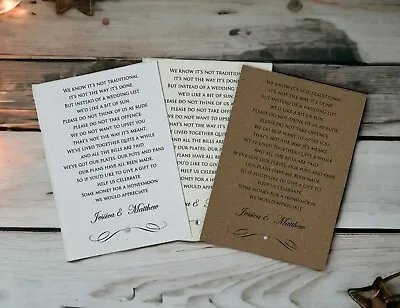 We know it's not traditional
It's not the way it's done
But instead of a wedding list
We'd like a bit of sun.
Please do not think of us as rude
Please do not take offence
We do not want to upset you
That's not the way it's meant.
We've lived together quite a while
And all the bills are paid
We've got our plates, pots and pans
Our plans have been made.
So if you'd like to give a gift to
help us celebrate
Some money for a honeymoon
We would appreciate
Jessica & Matthew
We know it's not traditional
It's not the way it's done
But instead of a wedding list
We'd like a bit of sun.
Please do not think of us as rude
We know it's not traditional
It's not the way it's done
But instead of a wedding list
We'd like a bit of sun.
Please do not think of us as rude
Please do not take offence
We do not want to upset you
That's not the way it's meant.
We've lived together quite a while
And all the bills are paid
We've got our plates, pots and pans
Our plans have been made.
So if you'd like to give a gift to
help us celebrate
Some money for a honeymoon
We would appreciate
Jessica & Matthew